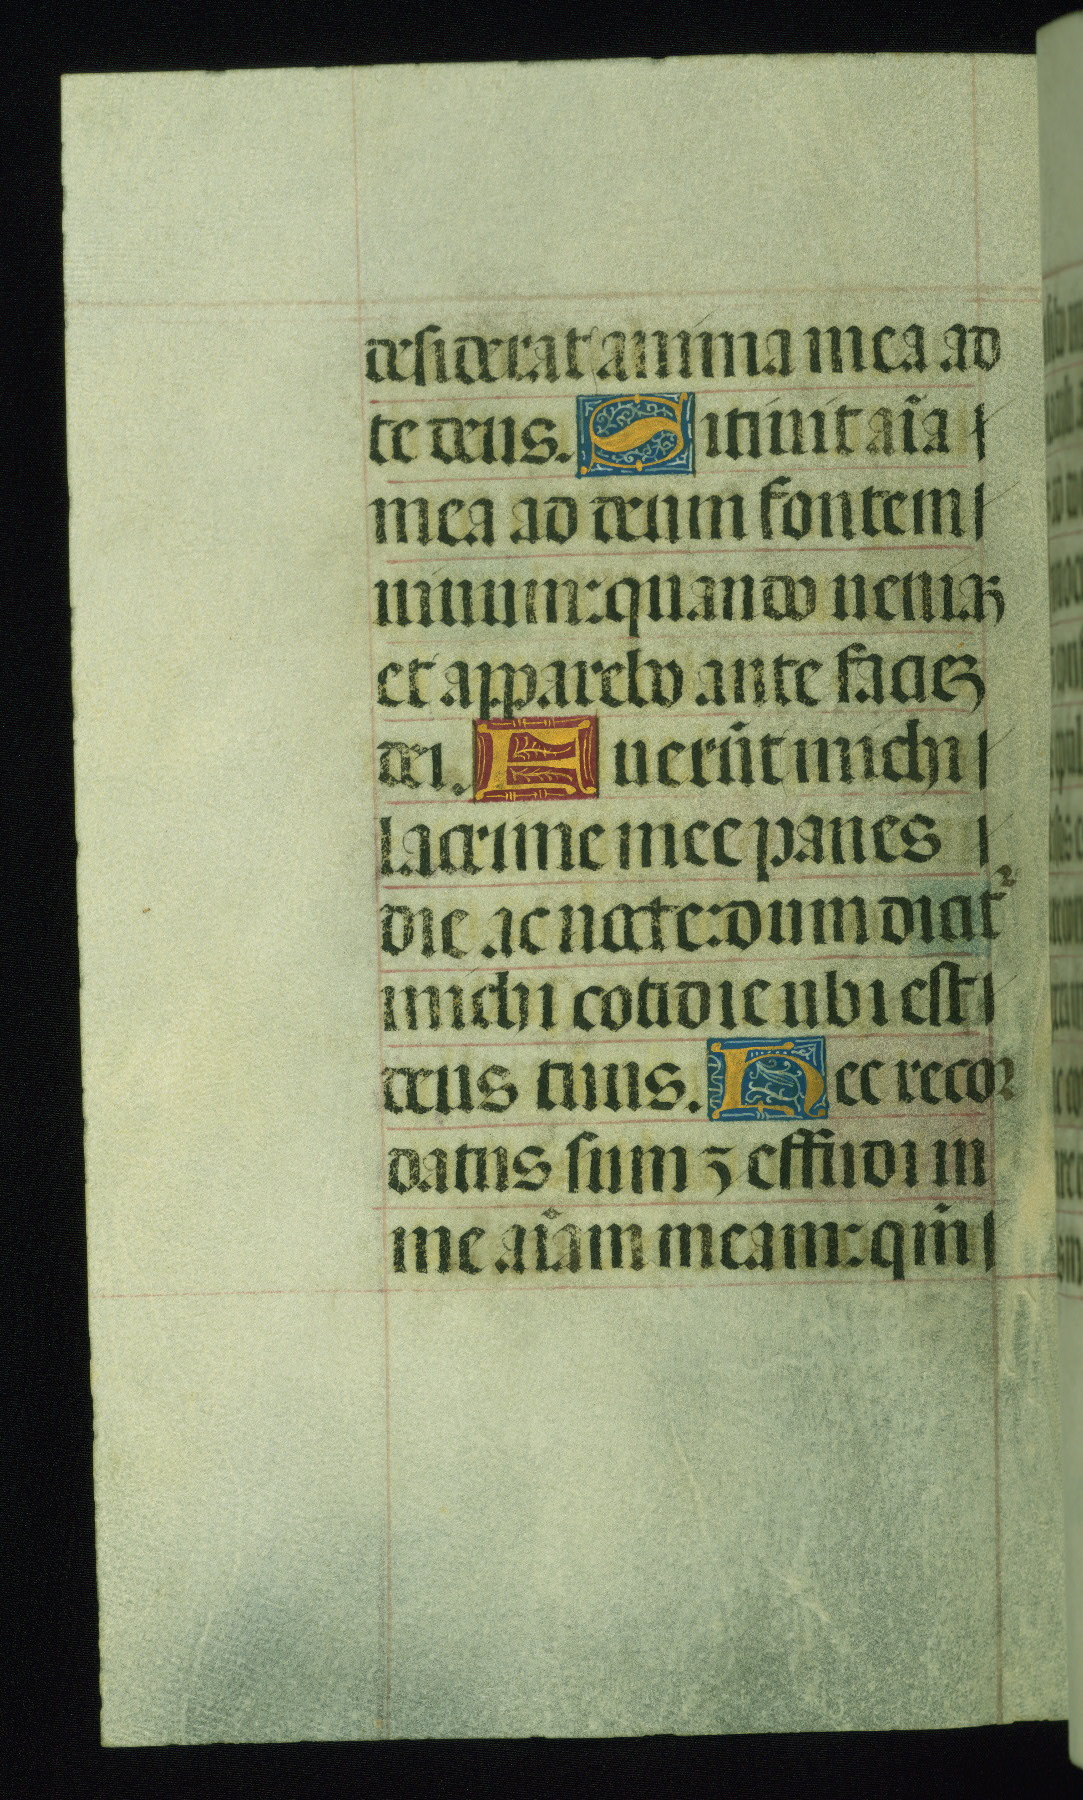 desiderat anima mea ad
te deus. Sitiuit aīa
mea ad deum fontem
uiuum: quando ueniaꝫ
et apparebo ante facieꝫ
dei. Fuerūt michi
lacrime mee panes
die ac nocte: dum dicit᷑
michi cotidie ubi est
deus tuus. Hec recor
datus sum ⁊ effudi in
me aīam meam: qm̄